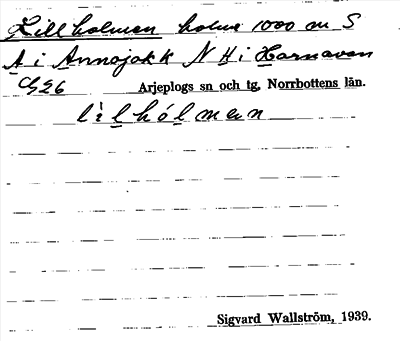 Lillholmen holme 1000 m S
A i Annajokk N H i Hornavan
Cg26 Arjeplogs sn och tg, Norrbottens län.
lìlhólmen
Sigvard Wallström, 1939.